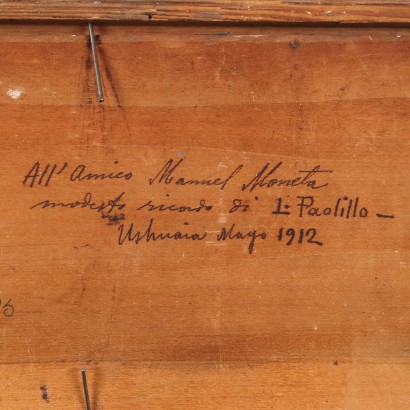 All' Amico Manuel Moneta
modesto ricordo di L. Paolillo —
Ushuaia Mayo 1912